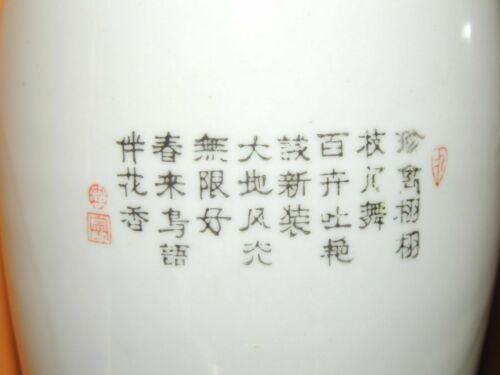 珍禽栩栩
枝间舞
百卉吐艳
試新装
大地风光
無限好
春来鸟語
伴花香